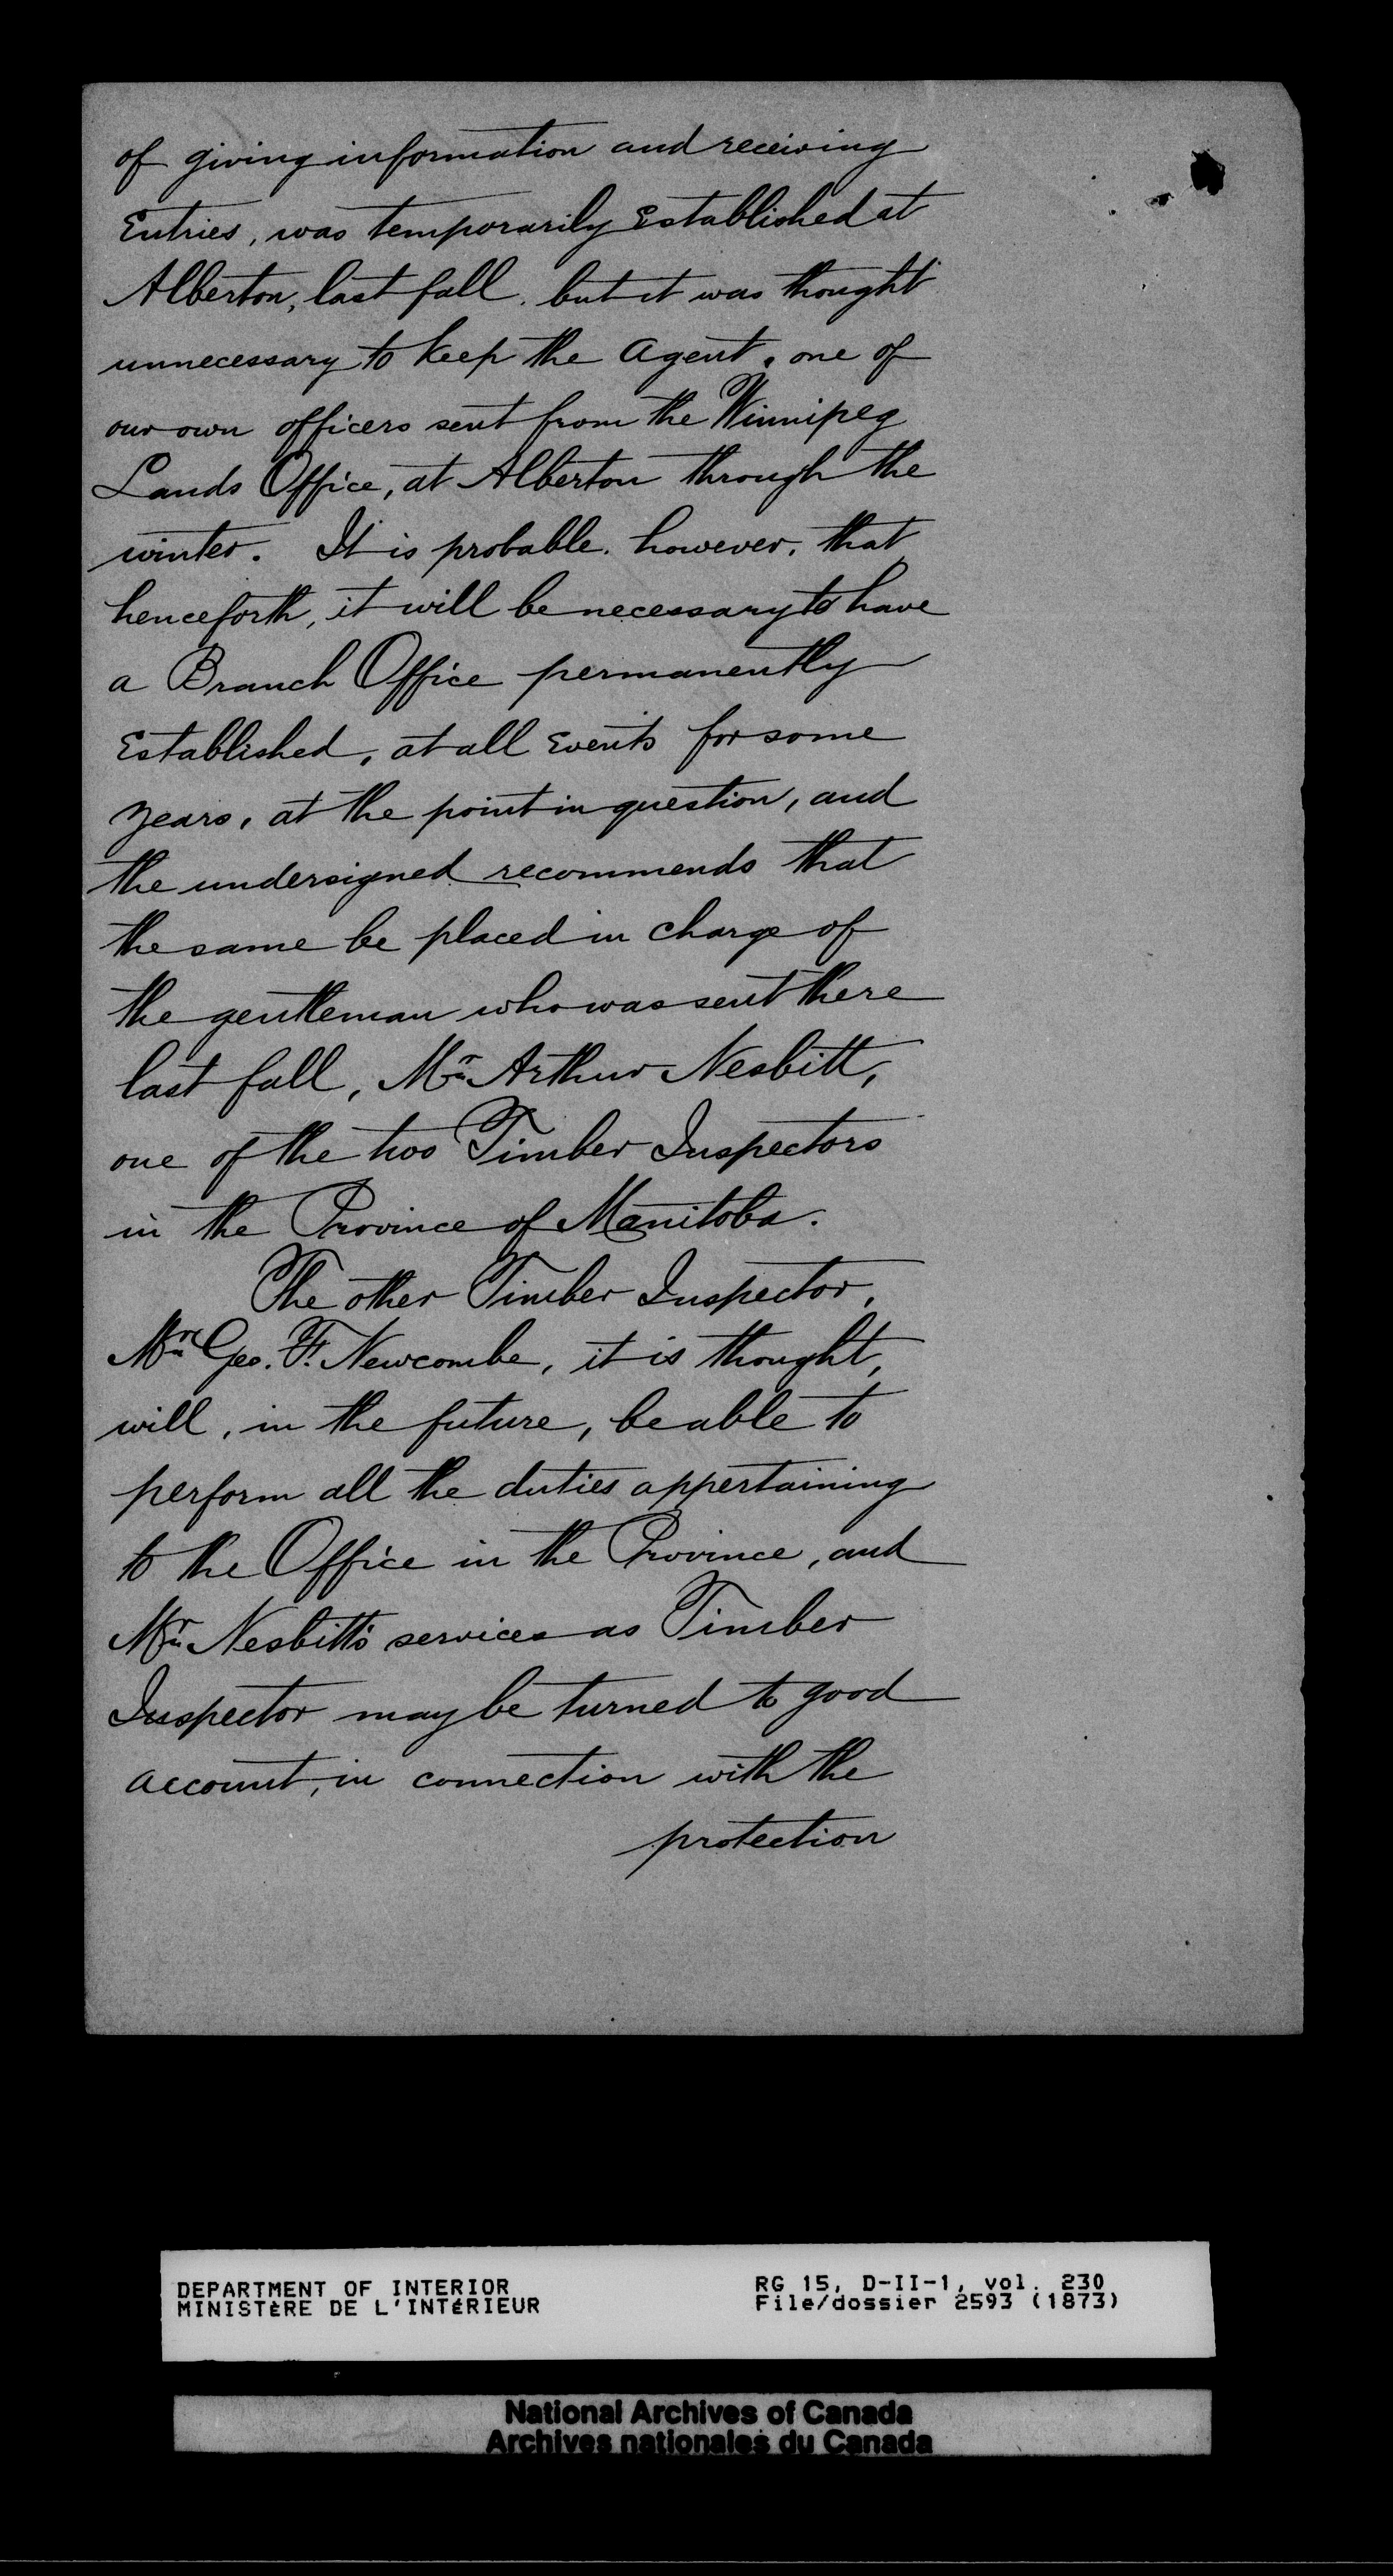 of giving information and receiving
Entries, was temporarily Established at
Alberton, last fall, but it was thought
unnecessary to keep the Agent, one of
our own officers sent from the Winnipeg
Lands Office, at Alberton through the
winter. It is probable, however, that
henceforth, it will be necessary to have
a Branch Office permanently
Established, at all Events for some
years, at the point in question, and
the undersigned recommends that
the same be placed in charge of
the gentleman who was sent there
last fall, Mr. Arthur Nesbitt,
one of the two Timber Inspectors
in the Province of Manitoba.
The other Timber Inspector,
Mr. Geo. F. Newcombe, it is thought,
will, in the future, be able to
perform all the duties appertaining
to the Office in the Province, and
Mr. Nesbitt's services as Timber
Inspector may be turned to good
account, in connection with the
protection
DEPARTMENT OF INTERIOR
MINISTÈRE DE L'INTÉRIEUR
RG 15, D-II-1, vol. 230
File/dossier 2593 (1873)
National Archives of Canada
Archives nationales du Canada